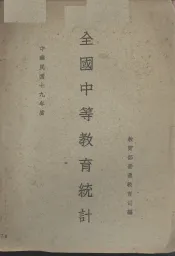 中華民國十九年度
全國中等教育統計
教育部普通教育司編